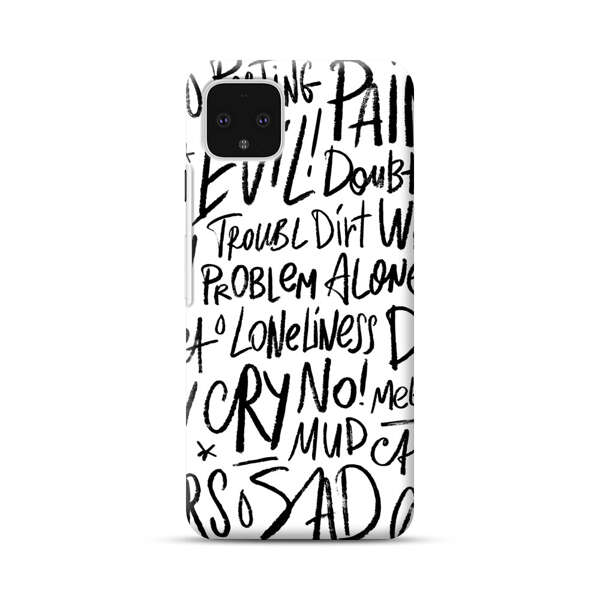 EVIL! PAI
Doubt
TROUBL Dirt W
PROBLEM ALONE
LONELINESS D
CRY NO! Mel
MUD CA
RS SAD